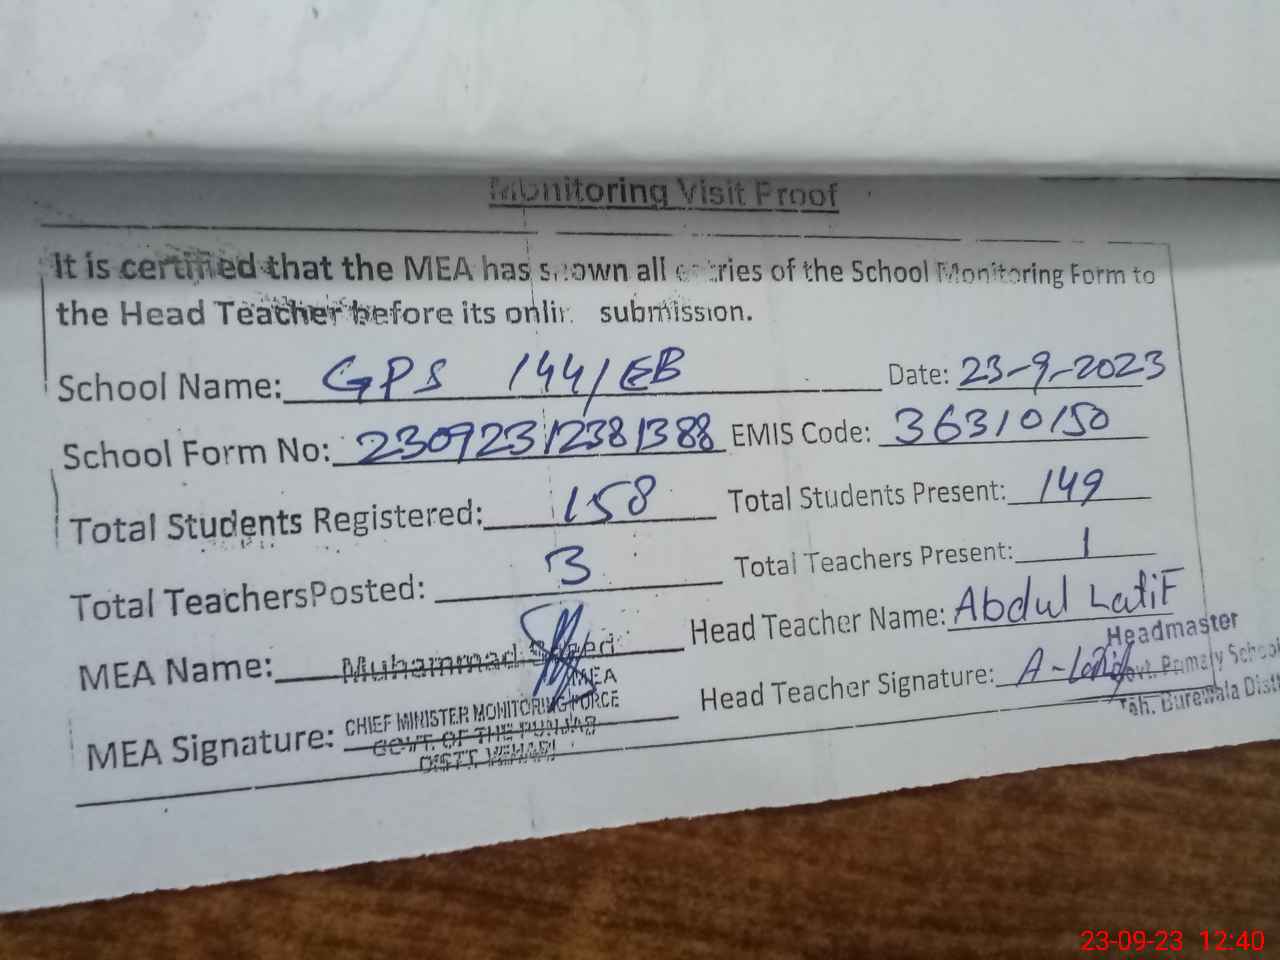 Monitoring Visit Proof
It is certified that the MEA has shown all entries of the School Monitoring Form to
the Head Teacher before its online submission.
School Name: GPS 144/EB Date: 23-9-2023
School Form No: 23092312381388 EMIS Code: 36310150
Total Students Registered: 158 Total Students Present: 149
Total TeachersPosted: 3 Total Teachers Present: 1
MEA Name: Muhammad Head Teacher Name: Abdul Latif
MEA
Headmaster
Govt. Primary School
Teh. Burewala Distt
MEA Signature: CHIEF MINISTER MONITORING FORCE Head Teacher Signature: A-Latif
GOVT. OF THE PUNJAB
DISTT. VEHARI
23-09-23 12:40